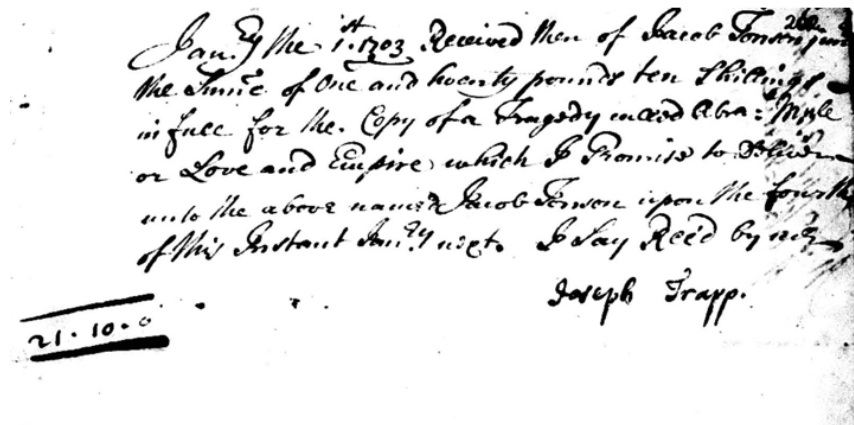 Jan:ry the 1st. 1703 Received then of Jacob Tonson junr
the Sume of One and twenty pounds ten Shillings
in full for the Copy of a Tragedy called Abra = Mule
or Love and Empire which I Promise to Deliver
unto the above named Jacob Tonson upon the fourth
of this Instant Jan:ry next. I Say Rec'd by me
Joseph Trapp.
21 - 10 - 0